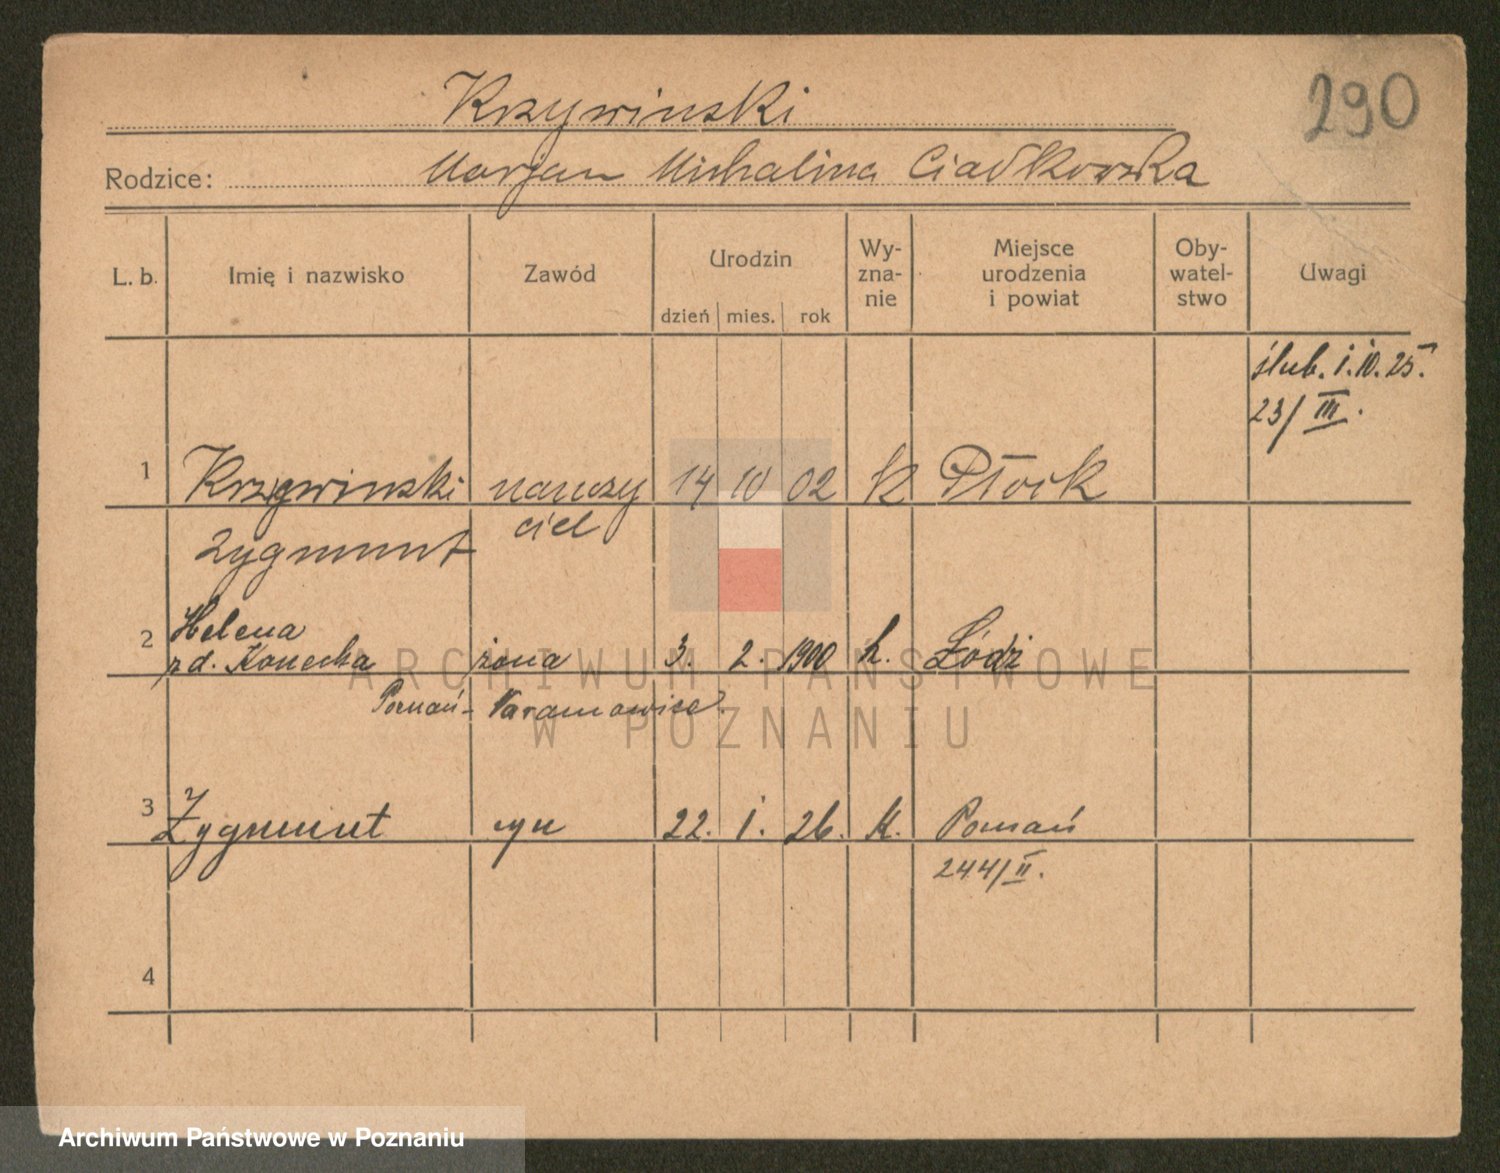 290
Krzywinski
Rodzice: Marjan Michalina Ciadkowska
L. b. Imię i nazwisko Zawód Urodzin dzień mies. rok Wy-zna-nie Miejsce urodzenia i powiat Oby-watel-stwo Uwagi
ślub. 1.10.25.
23/III.
1 Krzywinski nauczy 14 10 02 K Płock
Zygmunt ciel
2 Helena
zd. Konecka żona 3. 2. 1900 k. Łódź
Poznań-
3 Zygmunt syn 22. 1. 26. K. Poznań
244/II.
4
ARCHIWUM PAŃSTWOWE
W POZNANIU
Archiwum Państwowe w Poznaniu